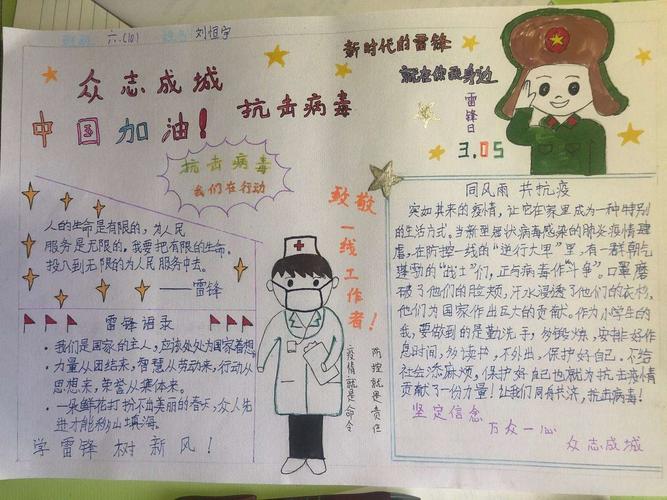 六.(10)
刘恒宇
众志成城
中国加油!
抗击病毒
新时代的雷锋
就在你我身边
雷锋日
3.05
抗击病毒
我们在行动
人的生命是有限的,为人民
服务是无限的,我要把有限的生命,
投入到无限的为人民服务中去。
——雷锋
雷锋语录
·我们是国家的主人,应该处处为国家着想
·力量从团结来,智慧从劳动来,行动从
思想来,荣誉从集体来。
·一朵鲜花打扮不出美丽的春天,众人先
进才能移山填海。
学雷锋 树新风!
致敬一线工作者!
疫情就是命令
防控就是责任
同风雨 共抗疫
突如其来的疫情,让宅在家里成为一种特别
的生活方式。当新型冠状病毒感染的肺炎疫情肆
虐,在防控一线的“逆行大军”里,有一群朝气
蓬勃的“战士”们,正与病毒作“斗争”。口罩磨
破了他们的脸颊,汗水浸透了他们的衣衫,
他们为国家作出巨大的贡献。作为小学生的
我,要做到的是勤洗手,多锻炼,安排好作
息时间,多读书,不外出,保护好自己,不给
社会添麻烦,保护好自己也就为抗击疫情
贡献了一份力量!让我们同舟共济,抗击病毒!
坚定信念
万众一心
众志成城